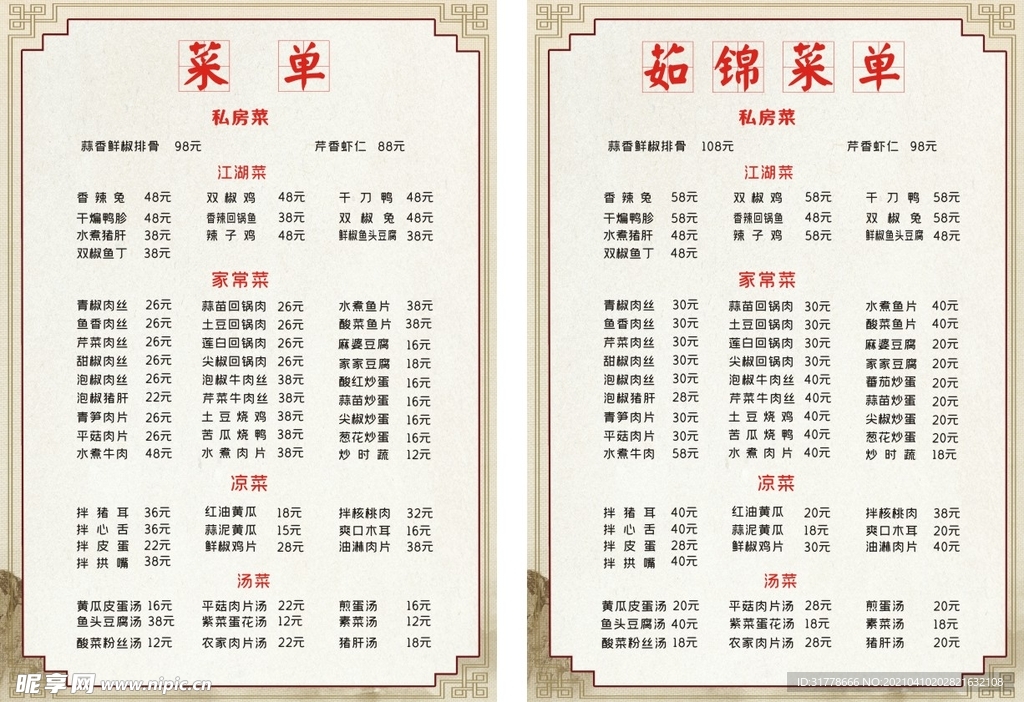 菜 单
私房菜
蒜香鲜椒排骨 98元 芹香虾仁 88元
江湖菜
香辣兔 48元 双椒鸡 48元 干刀鸭 48元
干煸鸭胗 48元 香辣回锅鱼 38元 双椒兔 48元
水煮猪肝 38元 辣子鸡 48元 鲜椒鱼头豆腐 38元
双椒鱼丁 38元
家常菜
青椒肉丝 26元 蒜苗回锅肉 26元 水煮鱼片 38元
鱼香肉丝 26元 土豆回锅肉 26元 酸菜鱼片 38元
芹菜肉丝 26元 莲白回锅肉 26元 麻婆豆腐 16元
甜椒肉丝 26元 尖椒回锅肉 26元 家家豆腐 18元
泡椒肉丝 26元 泡椒牛肉丝 38元 酸红炒蛋 16元
泡椒猪肝 22元 芹菜牛肉丝 38元 蒜苗炒蛋 16元
青笋肉片 26元 土豆烧鸡 38元 尖椒炒蛋 16元
平菇肉片 26元 苦瓜烧鸭 38元 葱花炒蛋 16元
水煮牛肉 48元 水煮肉片 38元 炒时蔬 12元
凉菜
拌猪耳 36元 红油黄瓜 18元 拌核桃肉 32元
拌心舌 36元 蒜泥黄瓜 15元 爽口木耳 16元
拌皮蛋 22元 鲜椒鸡片 28元 油淋肉片 38元
拌拱嘴 38元
汤菜
黄瓜皮蛋汤 16元 平菇肉片汤 22元 煎蛋汤 16元
鱼头豆腐汤 38元 紫菜蛋花汤 12元 素菜汤 12元
酸菜粉丝汤 12元 农家肉片汤 22元 猪肝汤 18元
昵享网 www.nipic.cn
茹锦菜单
私房菜
蒜香鲜椒排骨 108元 芹香虾仁 98元
江湖菜
香辣兔 58元 双椒鸡 58元 干刀鸭 58元
干煸鸭胗 58元 香辣回锅鱼 48元 双椒兔 58元
水煮猪肝 48元 辣子鸡 58元 鲜椒鱼头豆腐 48元
双椒鱼丁 48元
家常菜
青椒肉丝 30元 蒜苗回锅肉 30元 水煮鱼片 40元
鱼香肉丝 30元 土豆回锅肉 30元 酸菜鱼片 40元
芹菜肉丝 30元 莲白回锅肉 30元 麻婆豆腐 20元
甜椒肉丝 30元 尖椒回锅肉 30元 家家豆腐 20元
泡椒肉丝 30元 泡椒牛肉丝 40元 番茄炒蛋 20元
泡椒猪肝 28元 芹菜牛肉丝 40元 蒜苗炒蛋 20元
青笋肉片 30元 土豆烧鸡 40元 尖椒炒蛋 20元
平菇肉片 30元 苦瓜烧鸭 40元 葱花炒蛋 20元
水煮牛肉 58元 水煮肉片 40元 炒时蔬 18元
凉菜
拌猪耳 40元 红油黄瓜 20元 拌核桃肉 38元
拌心舌 40元 蒜泥黄瓜 18元 爽口木耳 20元
拌皮蛋 28元 鲜椒鸡片 30元 油淋肉片 40元
拌拱嘴 40元
汤菜
黄瓜皮蛋汤 20元 平菇肉片汤 28元 煎蛋汤 20元
鱼头豆腐汤 40元 紫菜蛋花汤 18元 素菜汤 18元
酸菜粉丝汤 18元 农家肉片汤 28元 猪肝汤 20元
ID:31778666 NO:20210410202821632108